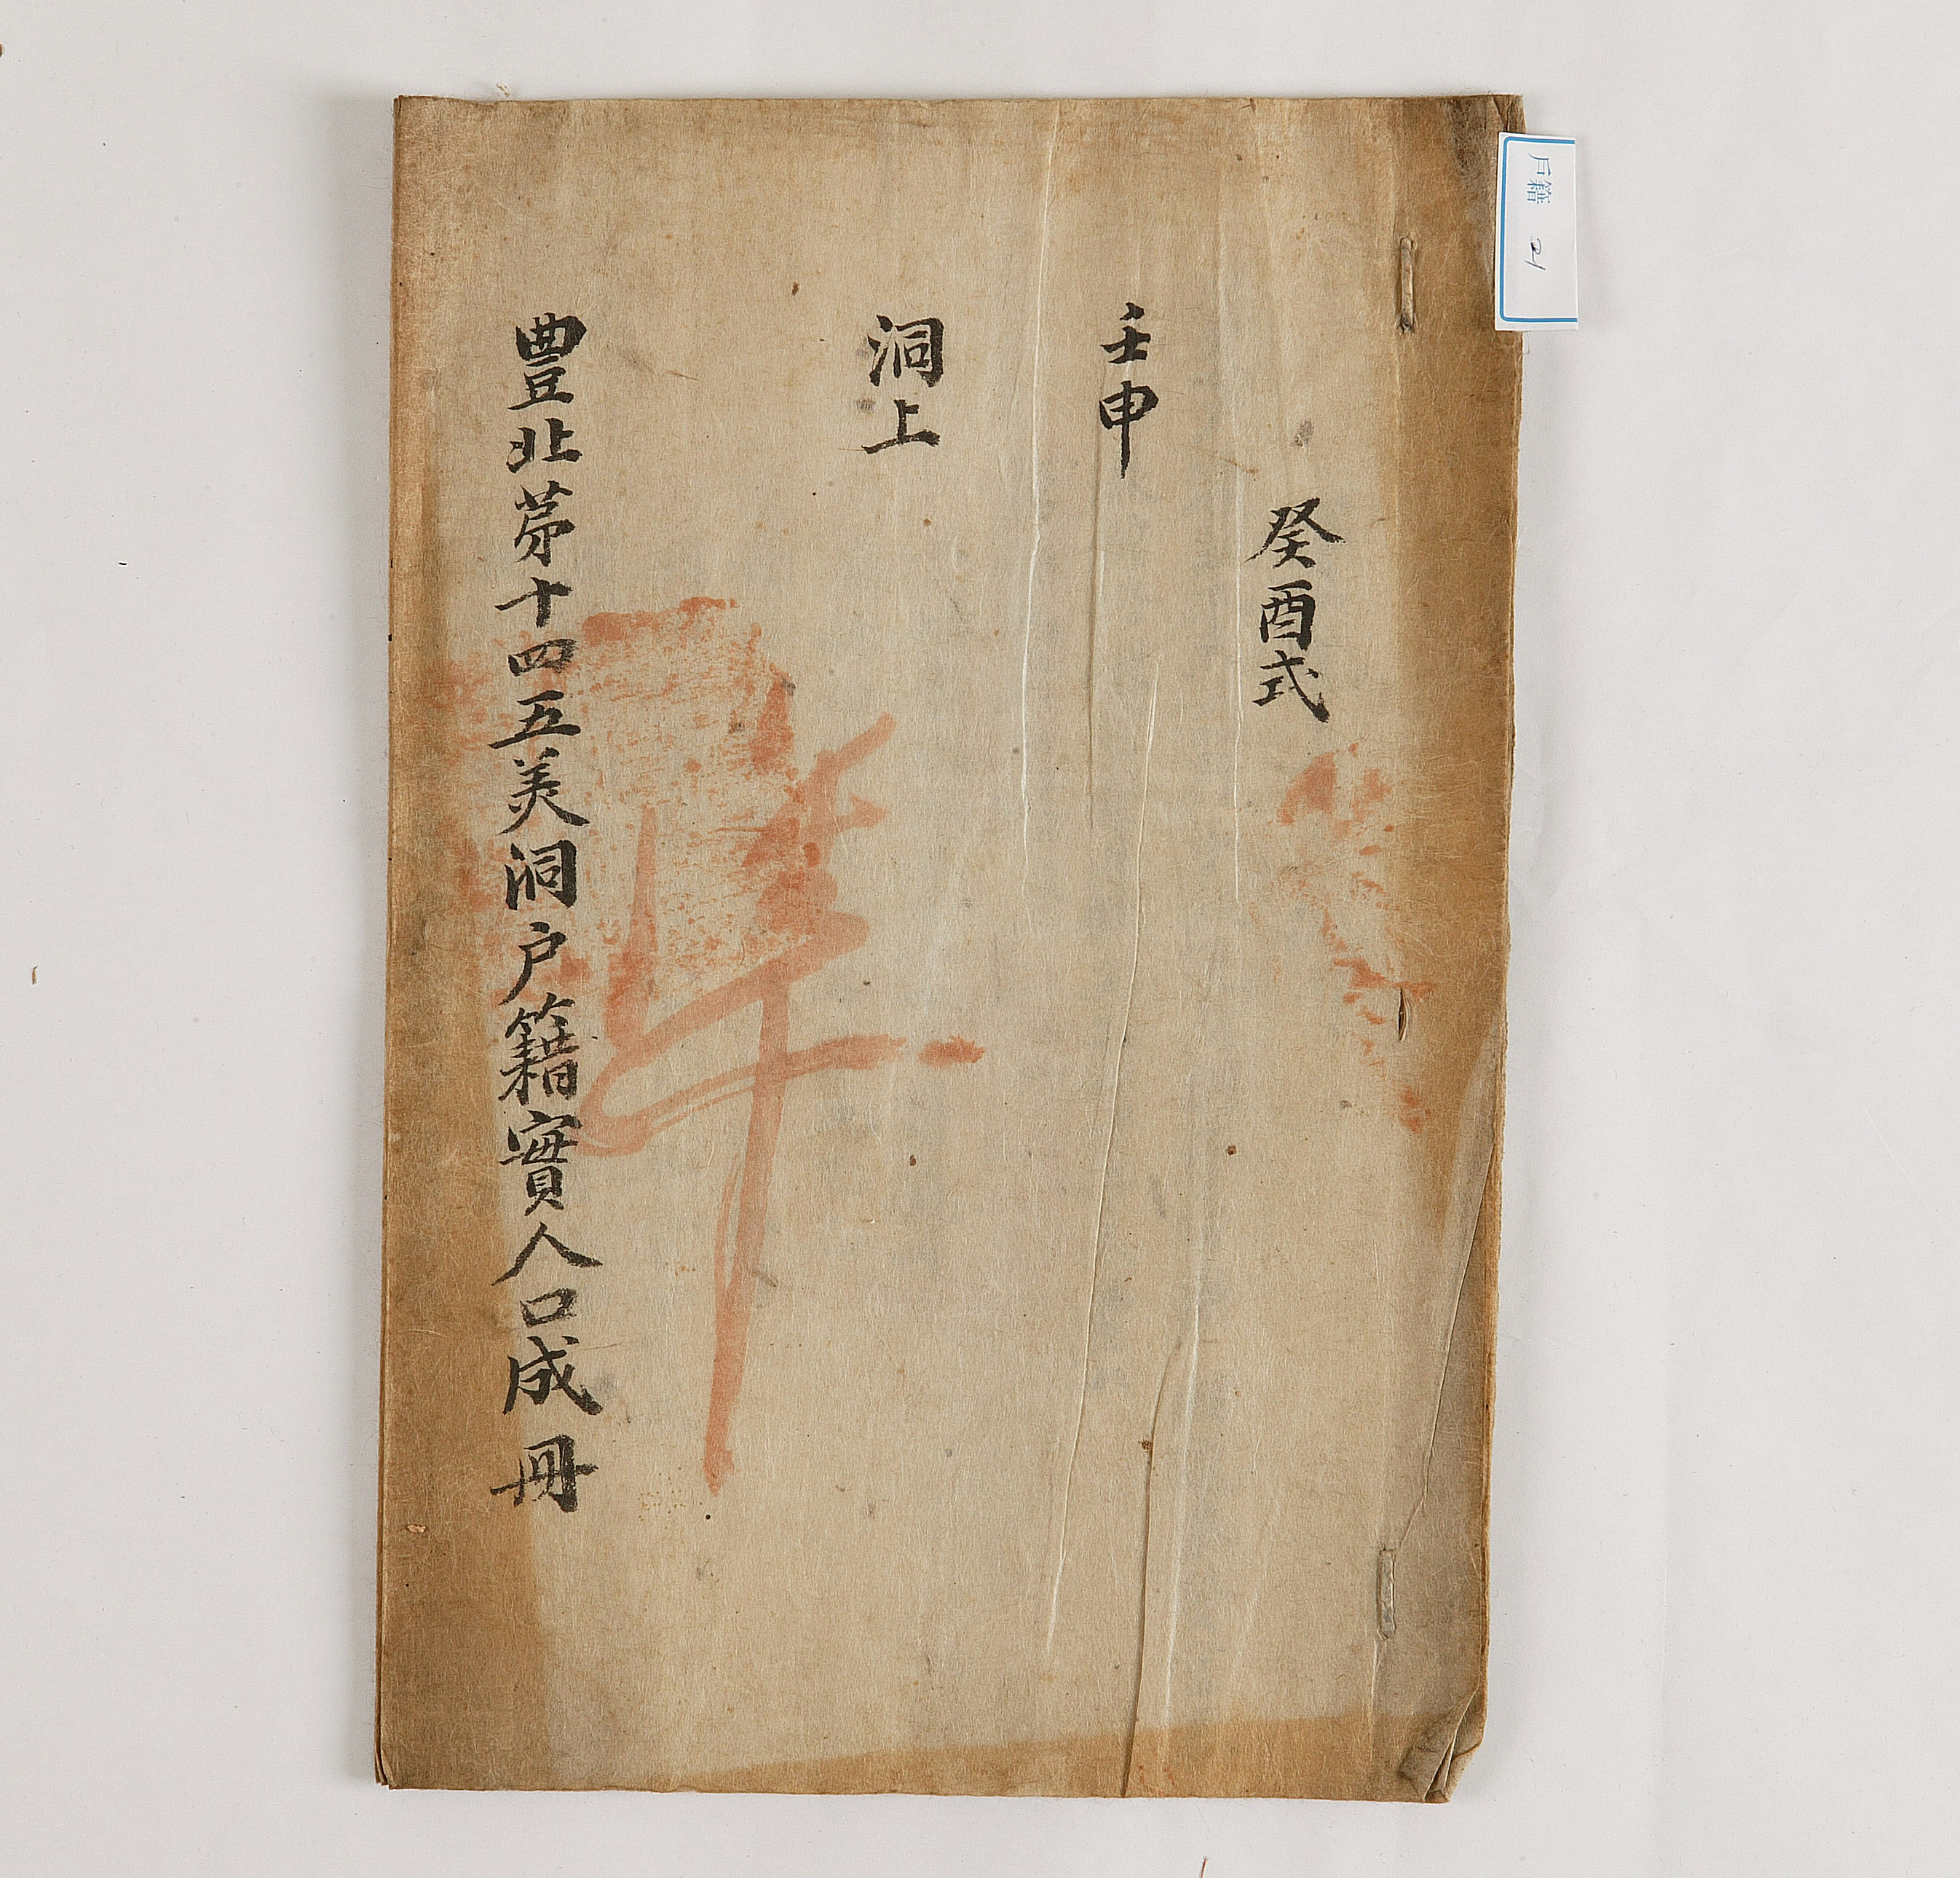 癸酉式
壬申
洞上
豊北苐十四五美洞户籍實人口成冊
戶籍 21